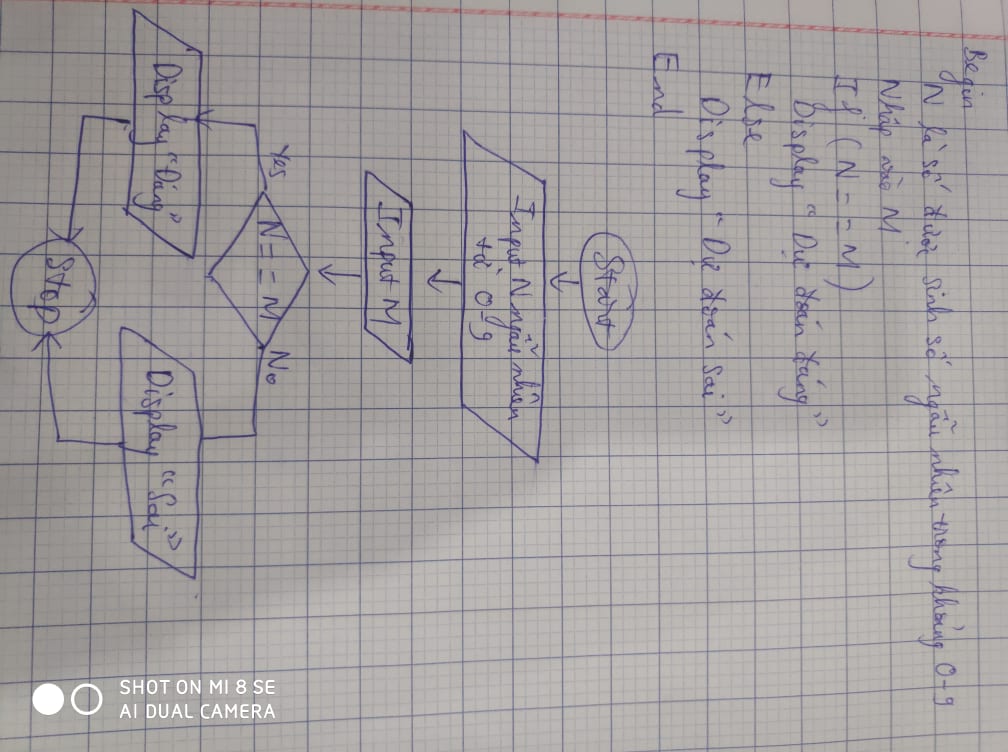 Begin
N là số được sinh số ngẫu nhiên trong khoảng 0-9
Nhập vào M
If (N == M)
Display "Dự đoán đúng"
Else
Display "Dự đoán sai"
End
Start
Input N ngẫu nhiên
từ 0-9
Input M
N == M
Yes
No
Display "Đúng"
Display "Sai"
Stop
SHOT ON MI 8 SE
AI DUAL CAMERA